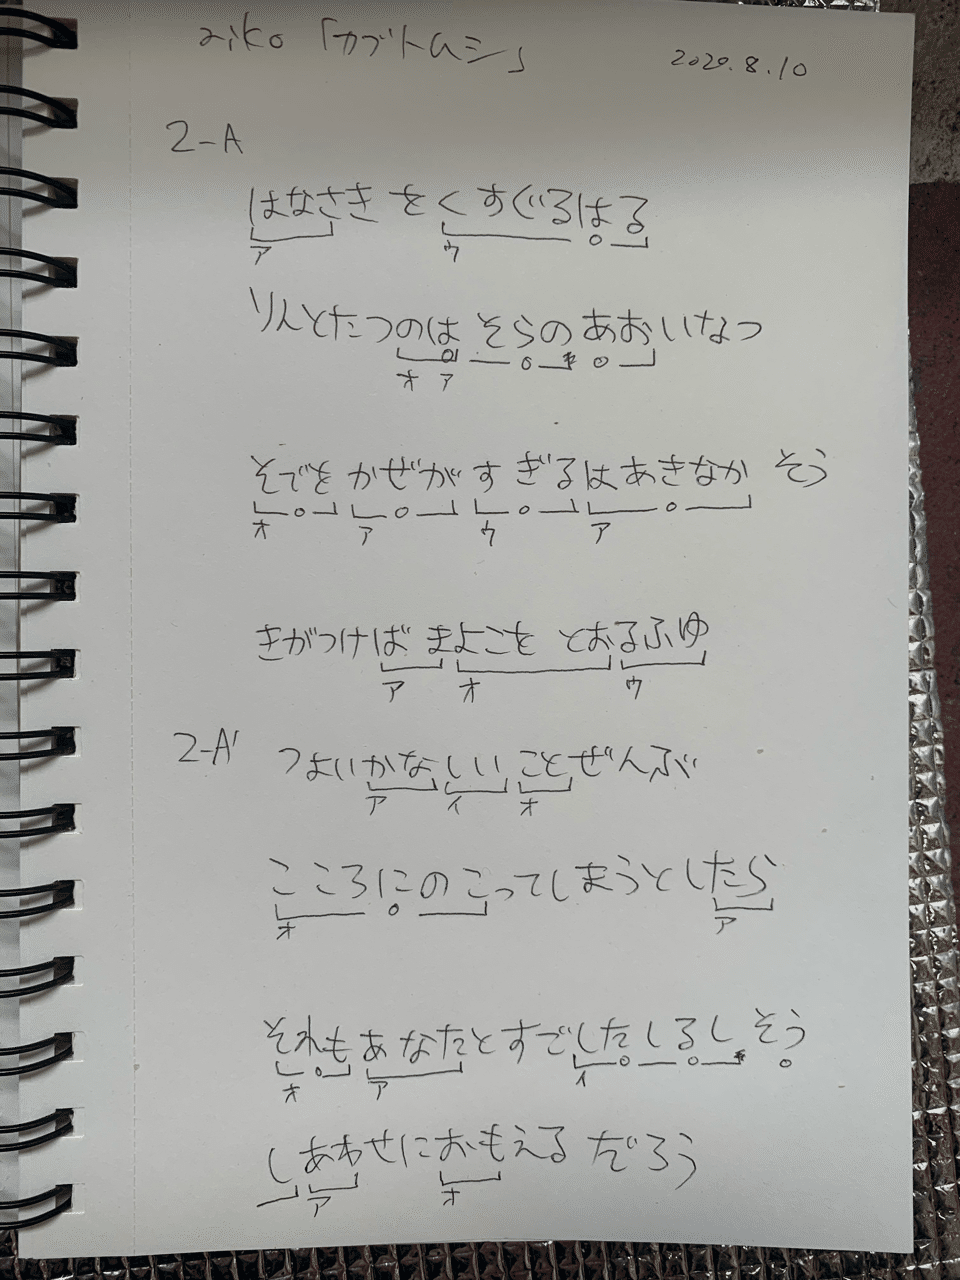 aiko「カブトムシ」 2020.8.10
2-A
はなさきをくすぐるはる
ア ウ
りんとたつのはそらのあおいなつ
オ ア
そでを かぜが すぎるは あきなか そう
オ ア ウ ア
きがつけば まよこを とおるふゆ
ア オ ウ
2-A' つよいかなしいことぜんぶ
ア イ オ
こころにのこってしまうとしたら
オ ア
それも あなたとすごしたしるし そう
オ ア イ
しあわせにおもえるだろう
ア オ